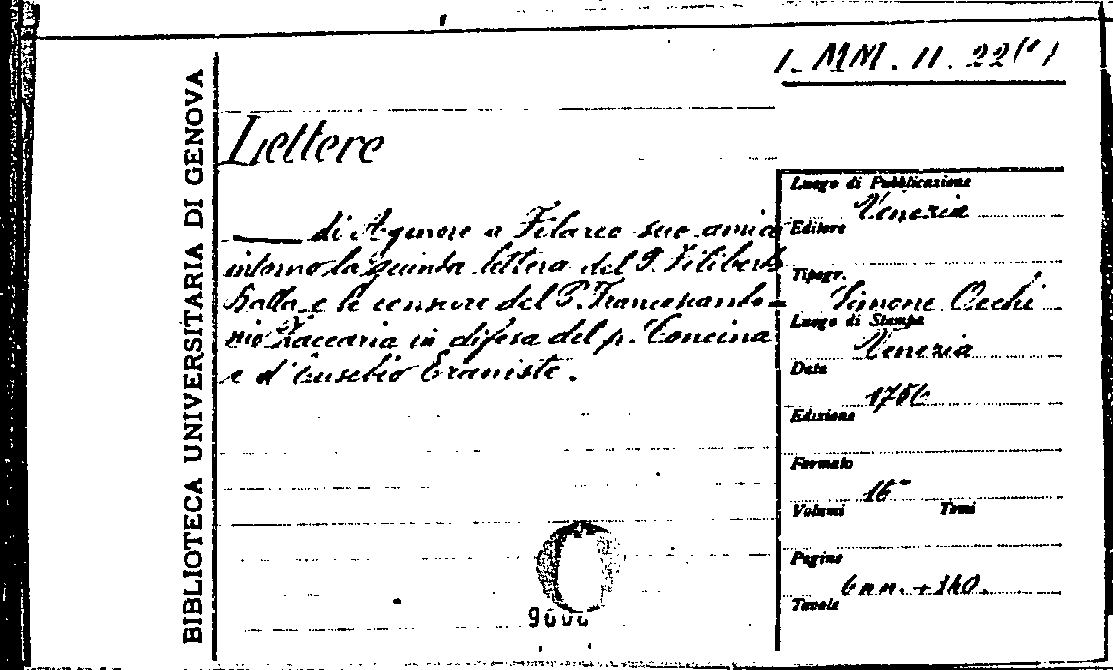 1. MM. 11. 22(1)
BIBLIOTECA UNIVERSITARIA DI GENOVA
Lettere
di Agenore a Filareo suo amico
intorno la quinta lettera del P. Filiberto
Balla e le censure del P. Francescanto=
nio Zaccaria in difesa del p. Concina
e d'Eusebio Eraniste.
Luogo di Pubblicazione
Venezia
Editore
Tipogr.
Simone Occhi
Luogo di Stampa
Venezia
Data
1756
Edizione
Formato
16°
Volumi Tomi
Pagine
6 nn. + 140.
Tavole